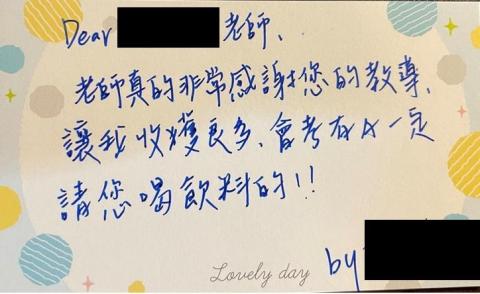 Dear 老師、
老師真的非常感謝您的教導、
讓我收獲良多、會考有A一定
請您喝飲料的!!
Lovely day
by